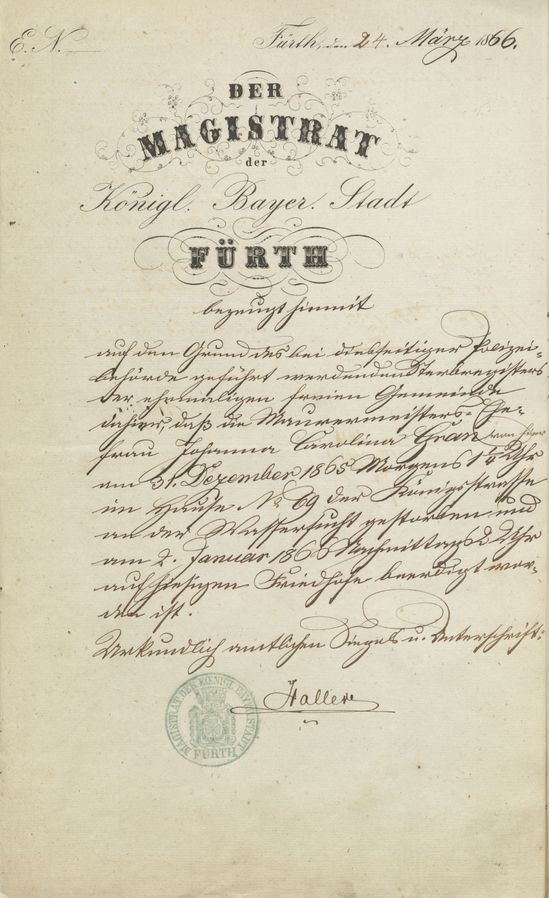 E. N.
Fürth, den 24. März 1866.
DER
MAGISTRAT
der
Königl. Bayer. Stadt
FÜRTH
bezeugt hiemit
auf den Grund des bei diesseitiger Polizei-
behörde geführt werdenden Sterberegisters
der ehemaligen freien Gemeinde
dahier, daß die Maurermeisters-Ehe-
frau Johanna Carolina Gran von hier
am 31. Dezember 1865 Morgens 1/4 Uhr
im Hause No 69 der Königsstrasse
an der Wassersucht gestorben und
am 2. Januar 1866 Nachmittags 2 Uhr
auf hiesigen Friedhofe beerdigt wor-
den ist.
Urkundlich amtlichen Siegels u. Unterschrift:
Haller
MAGISTRAT DER KÖNIGL. BAYER. STADT
FÜRTH